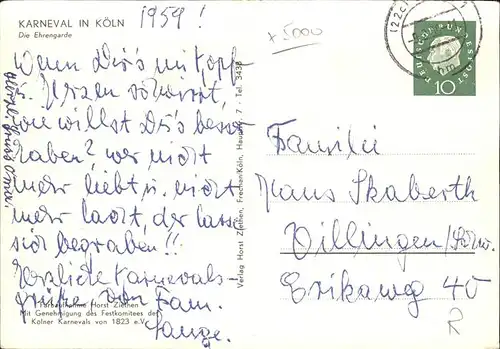 KARNEVAL IN KÖLN
Die Ehrengarde
1959!
x 5000
Wenn Dir's mit Kopf-
u. Herzen schwirrt,
was willst Dir's besser
haben? wer nicht
mehr liebt u. nicht
mehr lacht, der lasse
sich begraben!!
Herzliche Karnevals-
grüße von Fam.
Lange.
Herzl. Gruss Oma!
Farbaufnahme Horst Ziethen
Mit Genehmigung des Festkomitees der
Kölner Karnevals von 1823 e.V.
Verlag Horst Ziethen, Frechen/Köln, Hauptstr. 7 · Tel. 3438
(22c)
DEUTSCHE BUNDESPOST
10
Familie
Hans Skaberth
Villingen/Schw.
Erikaweg 40
R